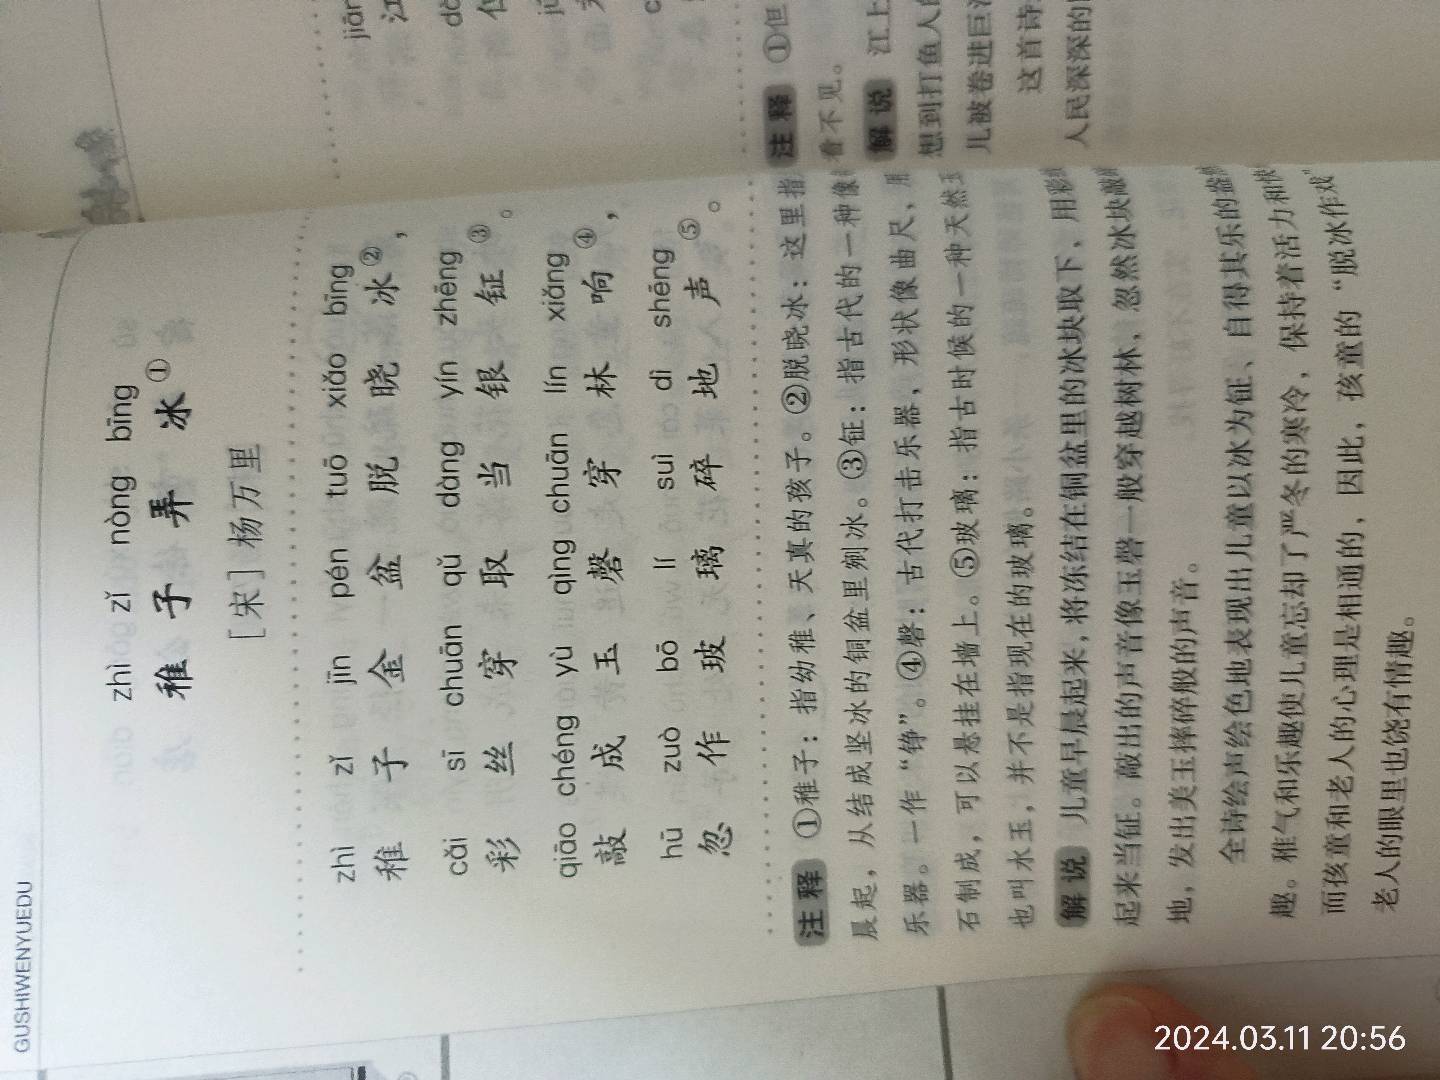 GUSHIWENYUEDU
zhì zǐ nòng bīng
稚子弄冰①
[宋]杨万里
zhì zǐ jīn pén tuō xiǎo bīng
稚子金盆脱晓冰②，
cǎi sī chuān qǔ dàng yín zhēng
彩丝穿取当银钲③。
qiāo chéng yù qìng chuān lín xiǎng
敲成玉磬穿林响④，
hū zuò bō lí suì dì shēng
忽作玻璃碎地声⑤。
注释 ①稚子：指幼稚、天真的孩子。②脱晓冰：这里指
晨起，从结成坚冰的铜盆里剜冰。③钲：指古代的一种像
乐器。一作“铮”。④磬：古代打击乐器，形状像曲尺，用
石制成，可以悬挂在墙上。⑤玻璃：指古时候的一种天然玉
也叫水玉，并不是指现在的玻璃。
解说 儿童早晨起来，将冻结在铜盆里的冰块取下，用彩
起来当钲。敲出的声音像玉磬一般穿越树林，忽然冰块敲
地，发出美玉摔碎般的声音。
全诗绘声绘色地表现出儿童以冰为钲、自得其乐的盎
趣。稚气和乐趣使儿童忘却了严冬的寒冷，保持着活力和快
而孩童和老人的心理是相通的，因此，孩童的“脱冰作戏”
老人的眼里也饶有情趣。
jiān
江
注释 ①但
看不见。
解说 江上
想到打鱼人
儿被卷进巨
这首诗
人民深深的
2024.03.11 20:56